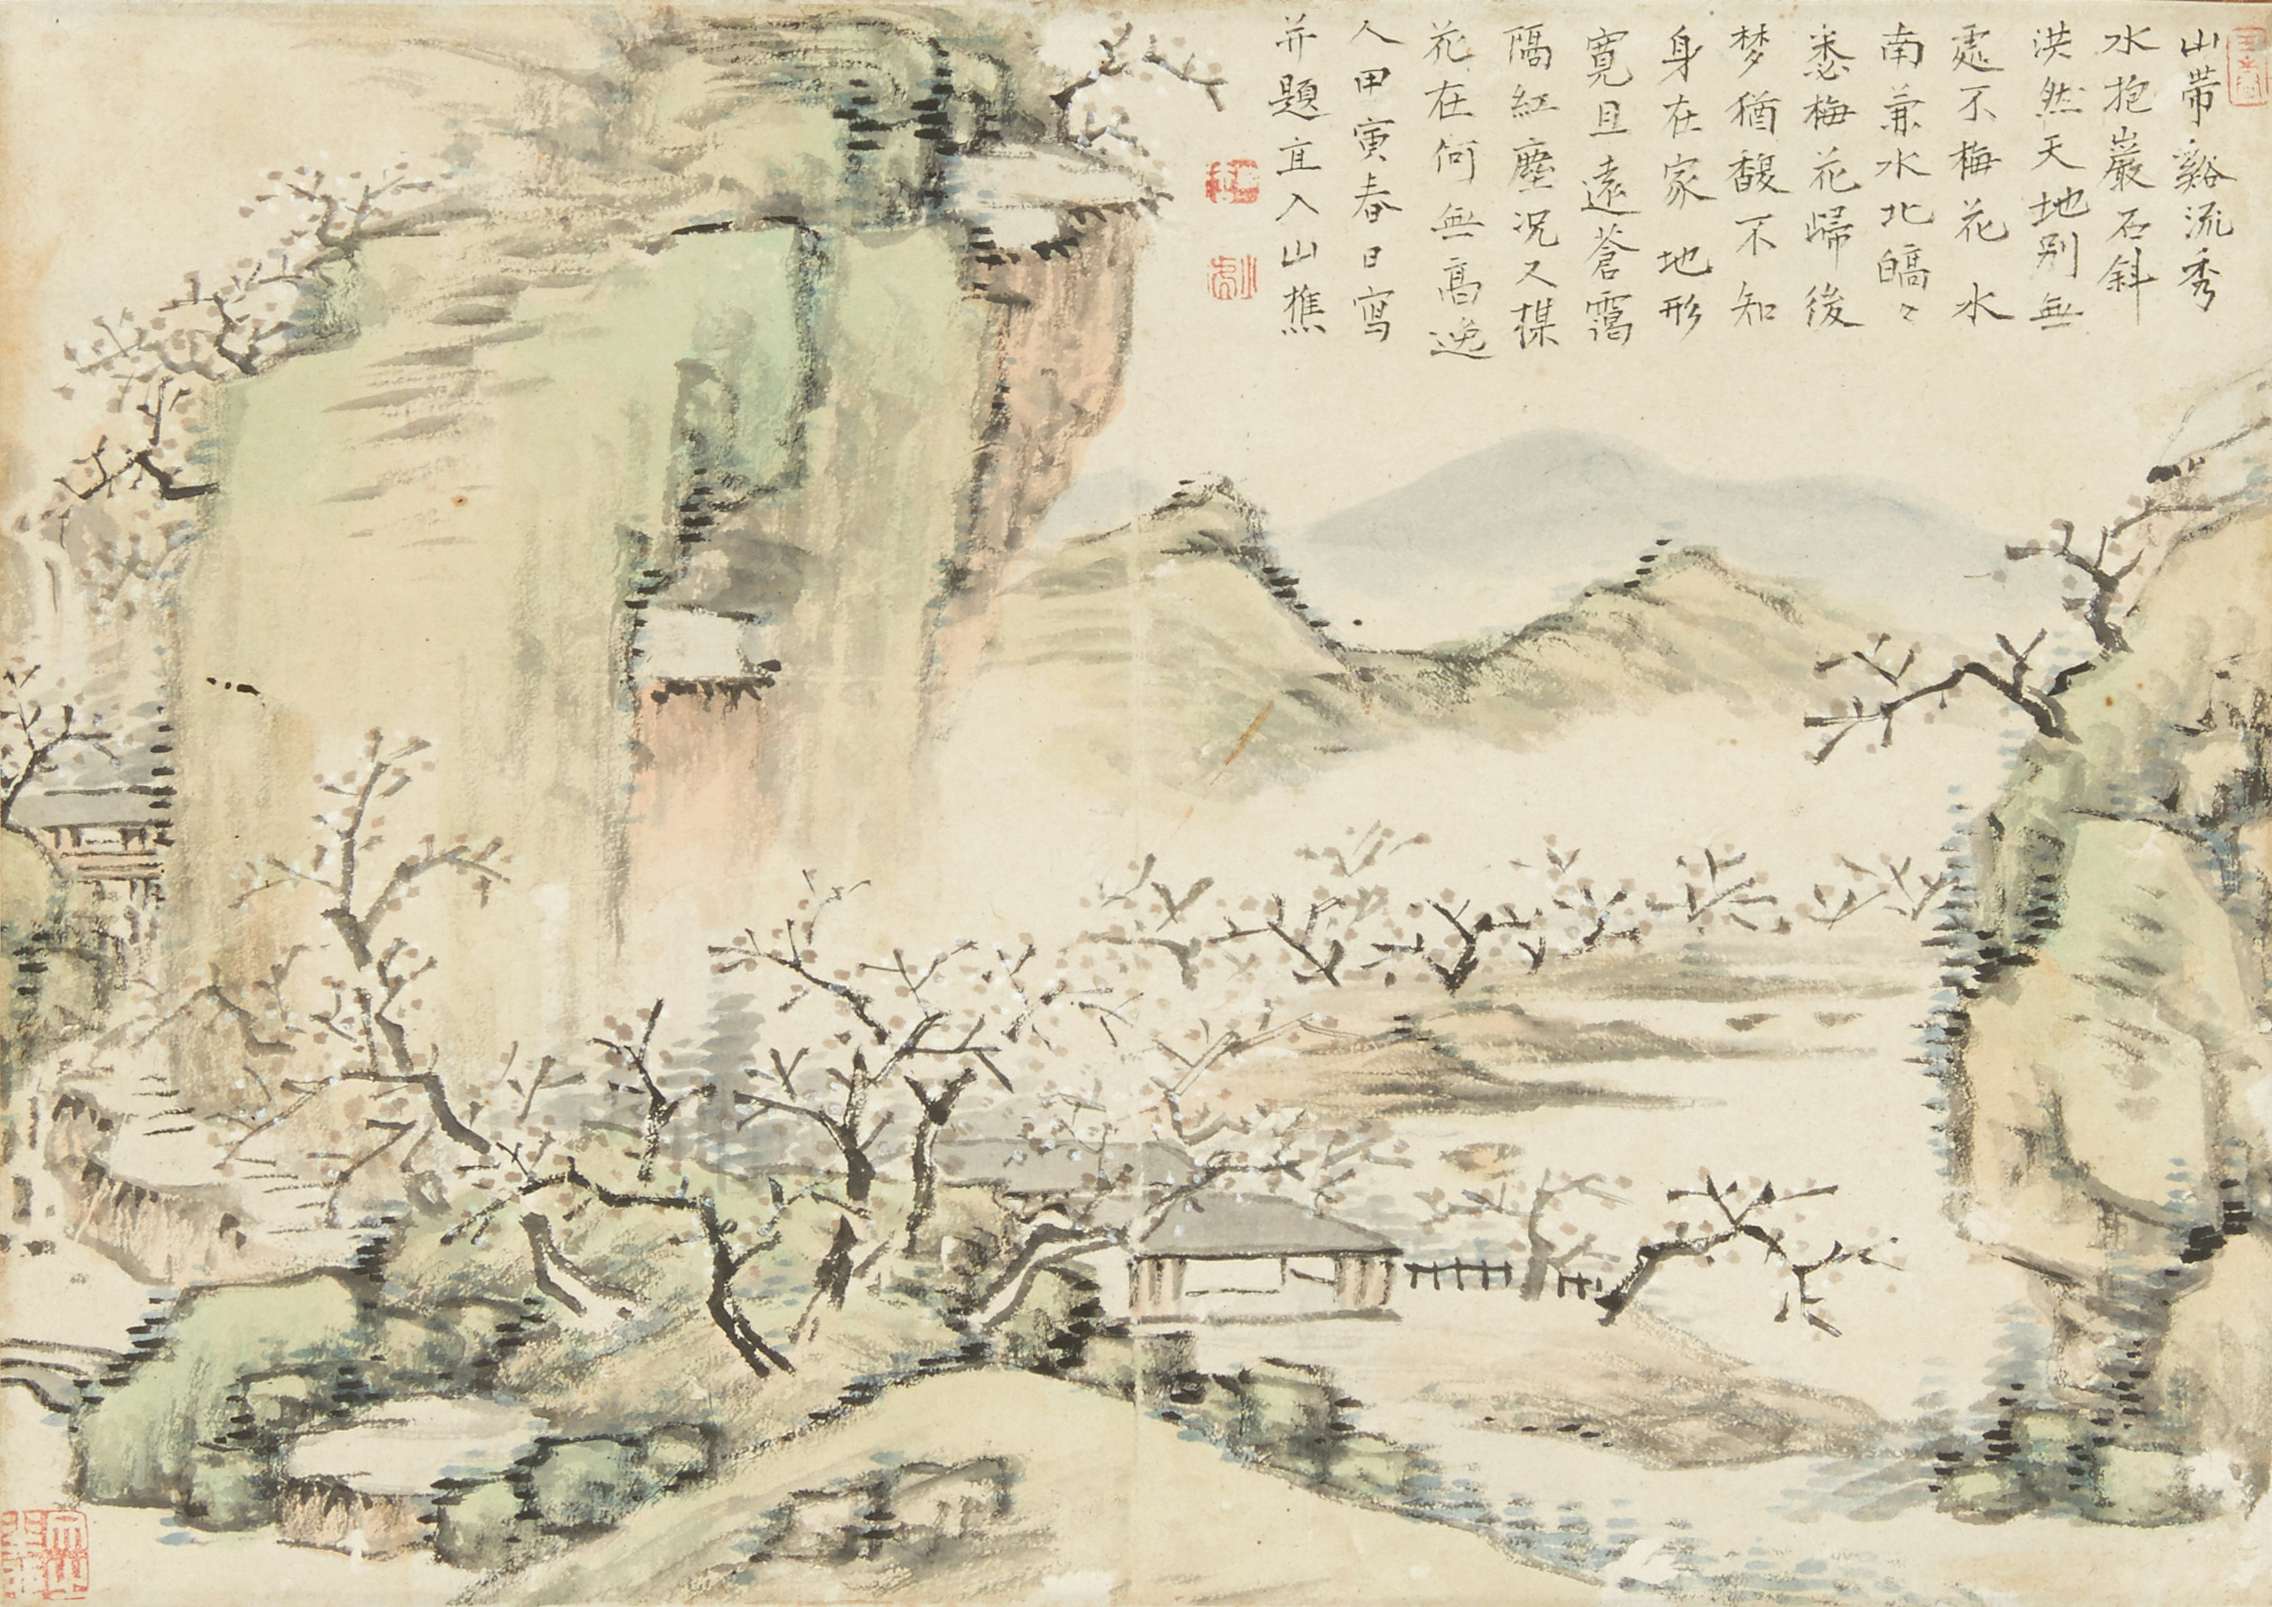 山帶谿流秀
水抱巖石斜
洪然天地别無
處不梅花水
南兼水北皜々
悉梅花歸後
梦猶馥不知
身在家地形
寬且遠蒼靄
隔紅塵况又
花在何無高逸
人甲寅春日寫
并題宜入山樵